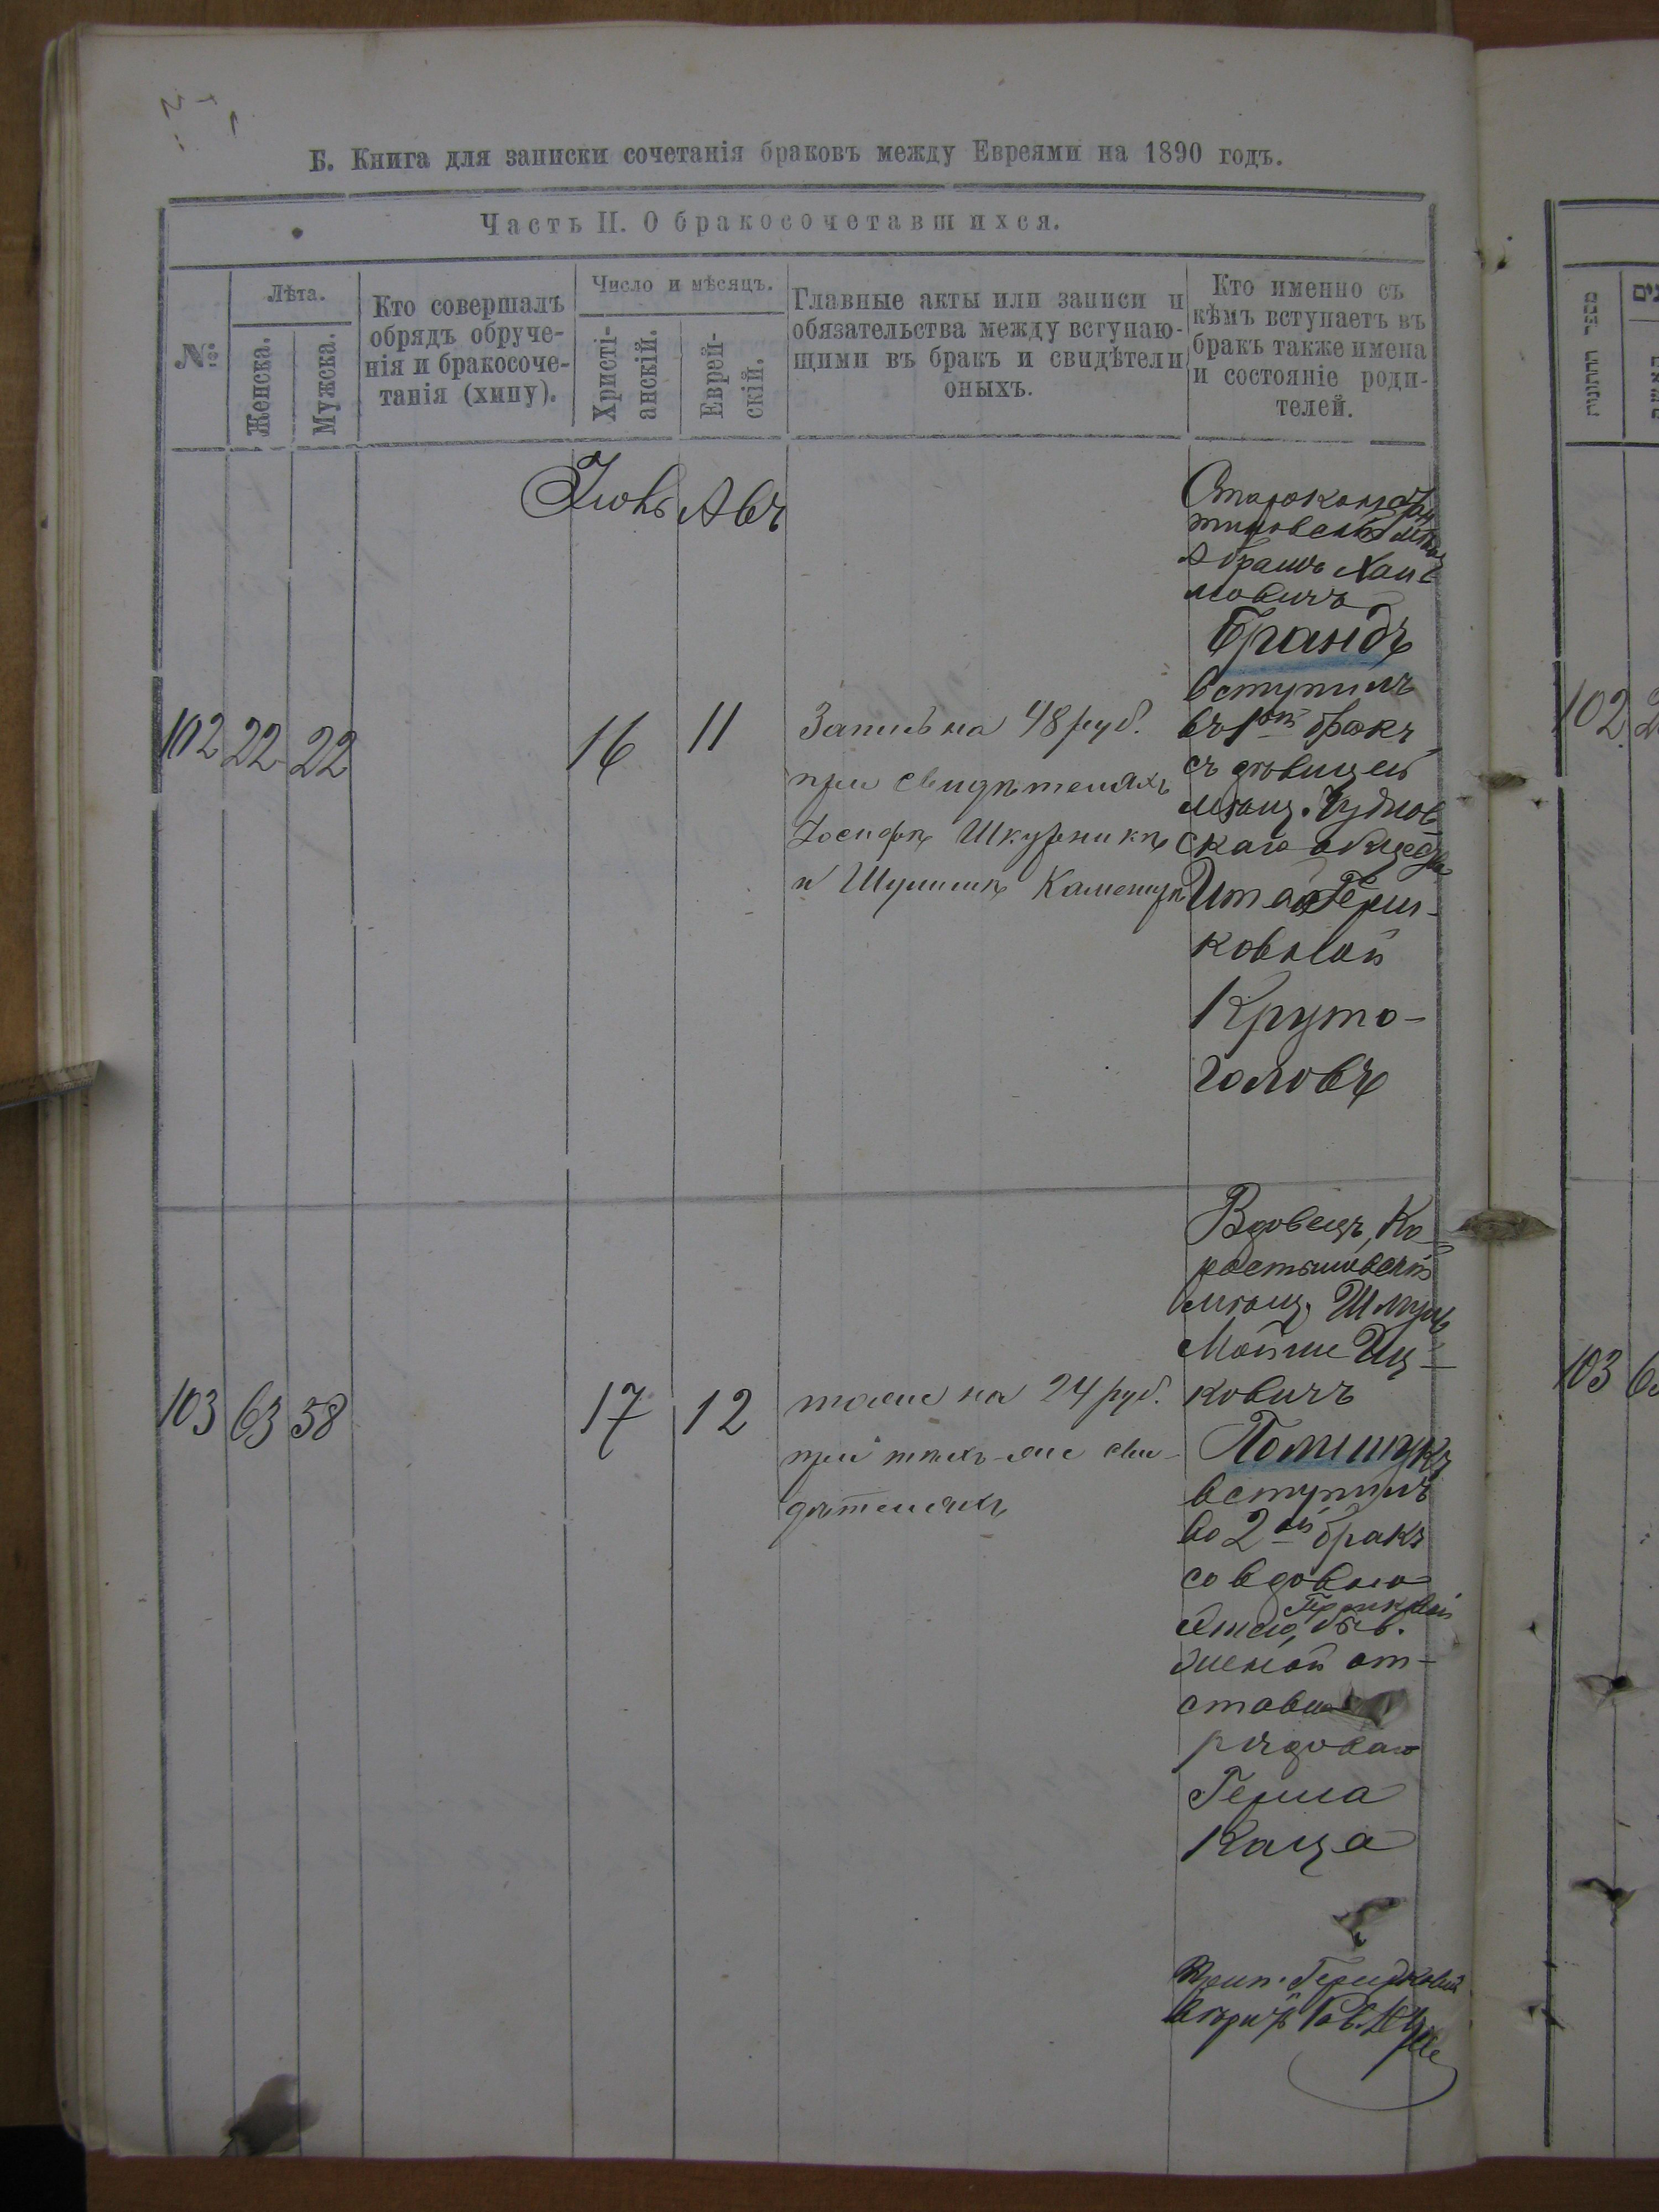 Б. Книга для записки сочетанія браковъ между Евреями на 1890 годъ.
Часть II. О бракосочетавшихся.
№
Лѣта.
Женска.
Мужска.
Кто совершалъ
обрядъ обруче-
нія и бракосоче-
танія (хипу).
Число и мѣсяцъ.
Христі-
анскій.
Еврей-
скій.
Главные акты или записи и
обязательства между вступаю-
щими въ бракъ и свидѣтели
оныхъ.
Кто именно съ
кѣмъ вступаетъ въ
бракъ также имена
и состояніе роди-
телей.
Іюль Авъ
102 22 22
16 11
Запись на 48 руб.
при свидѣтеляхъ
Іосифѣ Шкурникѣ
и Шулимѣ Каменирѣ
Староконстан-
тиновскій мѣщ.
Абрамъ Хаи-
мовичъ
Брандъ
вступилъ
въ 1ый бракъ
съ дѣвицей
мѣщ. Чуднов
скаго общества
Итой Герш-
ковной
Круто-
головъ
103 63 58
17 12
тоже на 24 руб.
при тѣхъ-же сви-
дѣтеляхъ
Вдовецъ, Ко-
ростышевскій
мѣщ. Шмуль
Мойше Иц-
ковичъ
Полищукъ
вступилъ
во 2ой бракъ
со вдовою
быв.
женой от-
ставн
рядоваго
Герша
Каца
102
103